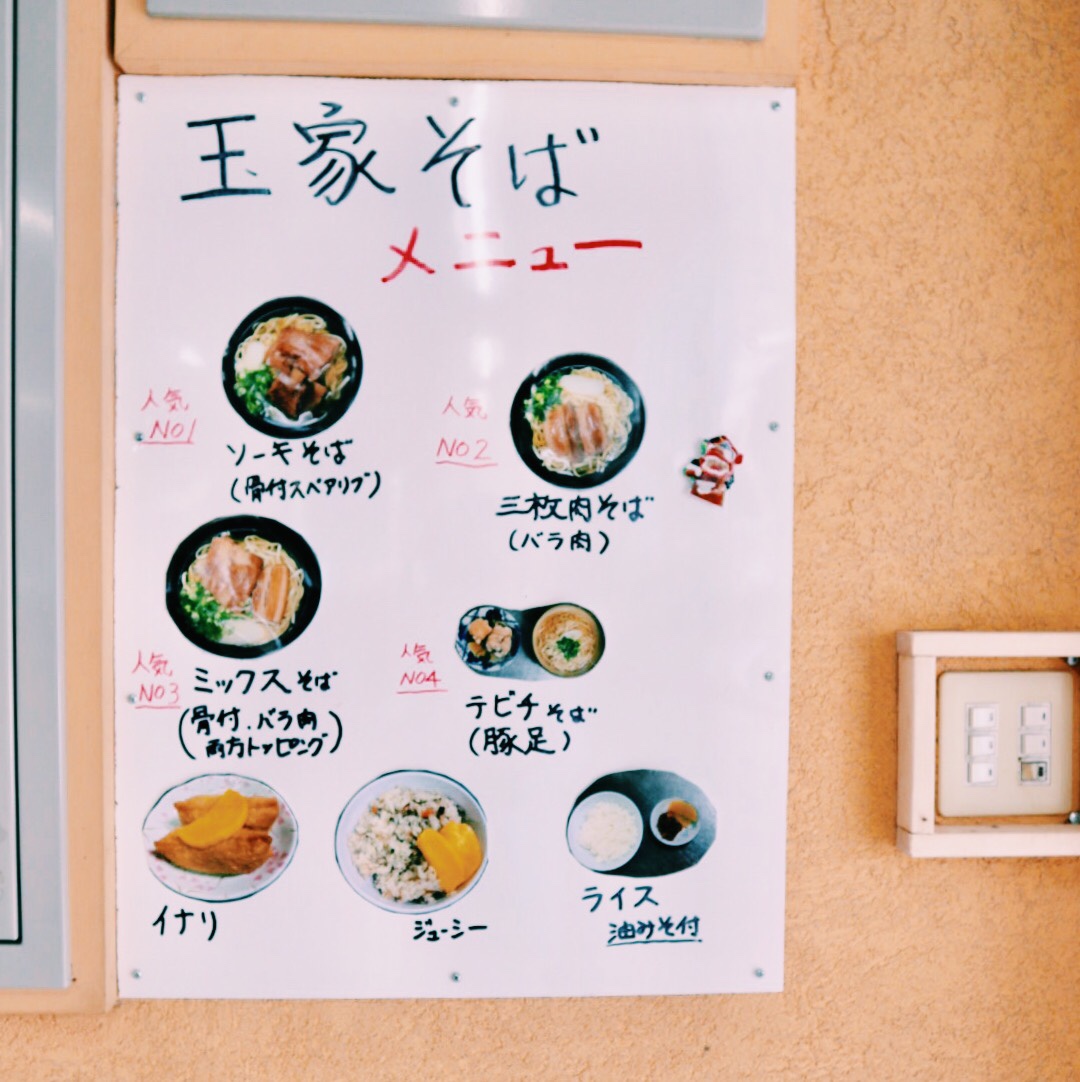 玉家そば
メニュー
人気
NO1
ソーキそば
(骨付スペアリブ)
人気
NO2
三枚肉そば
(バラ肉)
人気
NO3
ミックスそば
(骨付、バラ肉
両方トッピング)
人気
NO4
テビチそば
(豚足)
イナリ
ジューシー
ライス
油みそ付